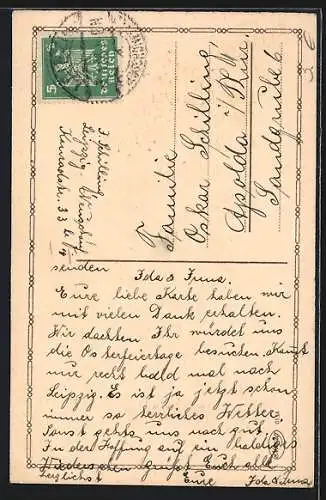 5
Deutsches Reich
J. Schilling
Leipzig
33
Familie
Oskar Schilling,
Apolda i/Thür.
Sandgrube 6
senden Ida & Irma.
Eure liebe Karte haben wir
mit vielen Dank erhalten.
Wir dachten Ihr würdet uns
die Osterfeiertage besuchen. Kommt
nur recht bald mal nach
Leipzig. Es ist ja jetzt schon
immer so herrliches Wetter.
Sonst gehts uns noch gut.
In der Hoffnung auf ein baldiges
Wiedersehen grüsst Euch alle
herzlichst Eure Ida & Irma